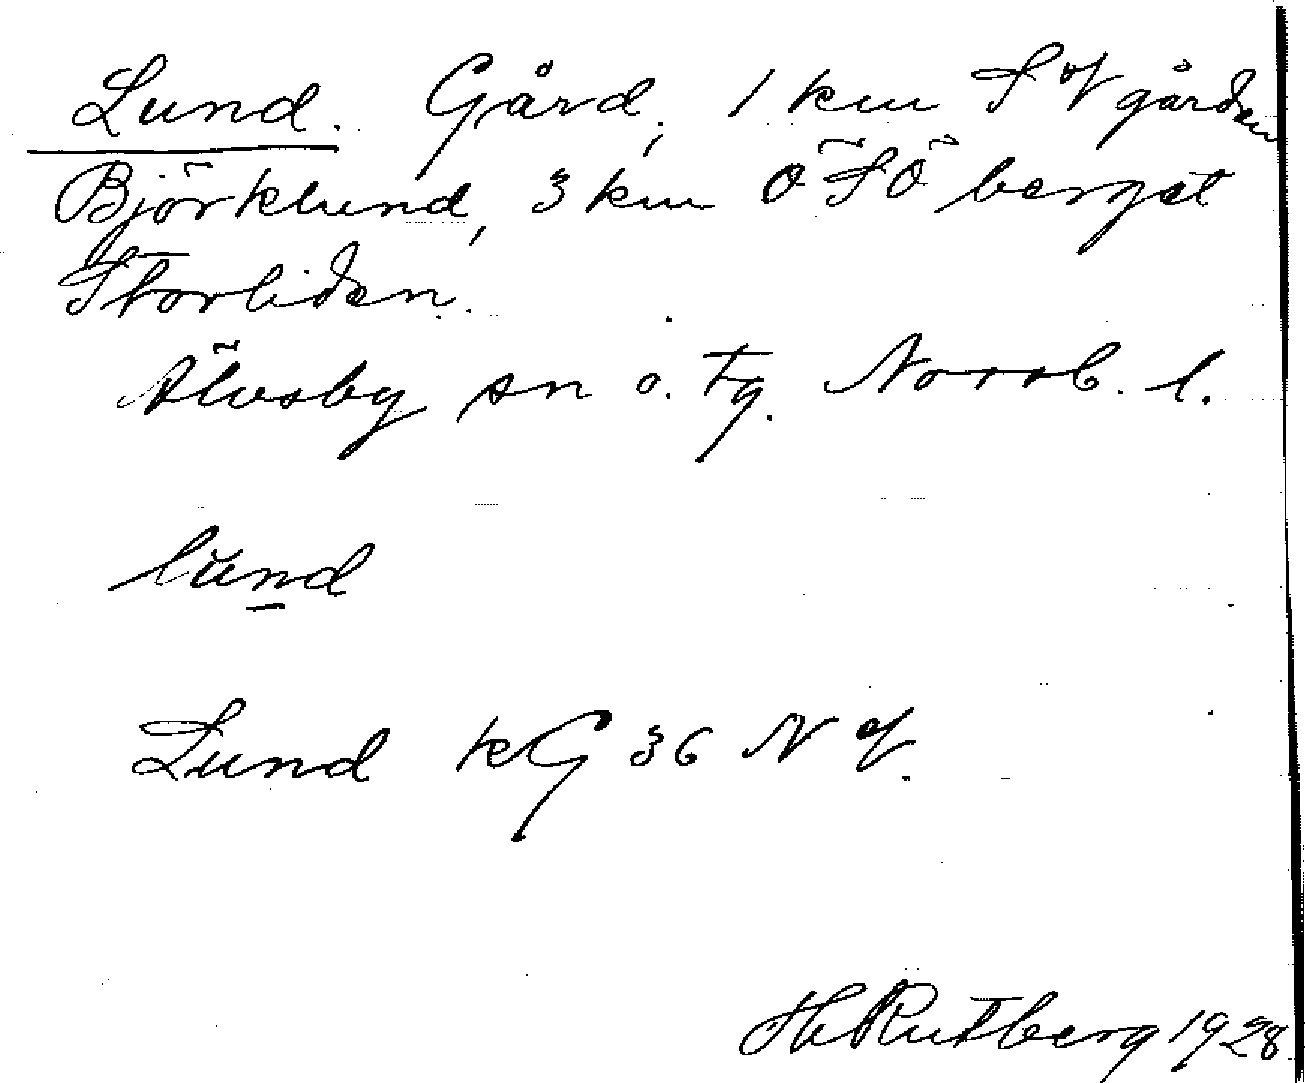 Lund. Gård, 1 km S of gården
Björklund, 3 km ÖSÖ berget
Storliden.
Älvsby sn o. tg. Norrb. l.
lund
Lund kG 36 N of.
H Rutberg 1928